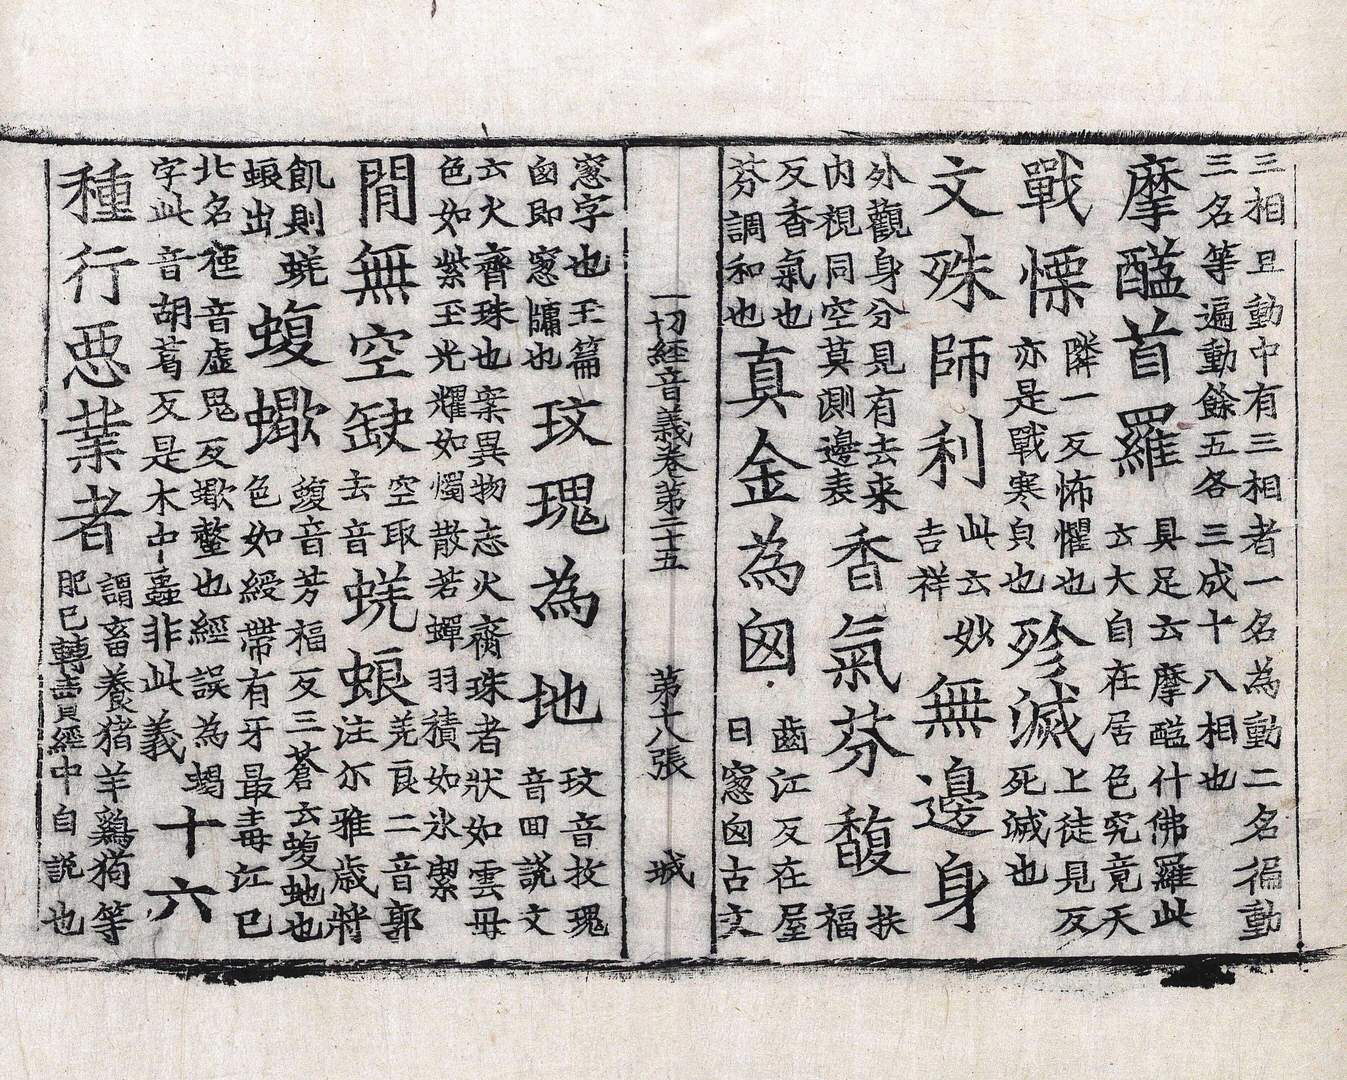 三相且動中有三相者一名為動二名徧動
三名等遍動餘五各三成十八相也
摩醯首羅
具足云摩醯什佛羅此
云大自在居色究竟天
戰慄
隣一反怖懼也
亦是戰寒皃也
殄滅
上徒見反
死滅也
文殊師利
此云妙
吉祥
無邊身
外觀身分見有去来
内視同空莫測邊表
香氣芬馥
扶
福
反香氣也
芬調和也
真金為囪
齒江反在屋
日窻囪古文
一切經音義卷第二十五 第十八張 城
窻字也玉篇
囪即窻牖也
玫瑰為地
玫音枚瑰
音回説文
云火齊珠也案異物志火齋珠者狀如雲母
色如紫玉光耀如燭散若蟬羽積如氷縠
閒無空缺
空取
去音
蜣蜋
羌良二音郭
注尒雅歲將
飢則蜣
蜋出
蝮蠍
蝮音芳福反三蒼云蝮虵也
色如綬帶有牙最毒江巳
北名音虚鬼反蠍螫也經誤為蝎
字此音胡葛反是木中蟲非此義
十六
種行惡業者
謂畜養猪羊鷄狗等
肥巳轉賣經中自説也